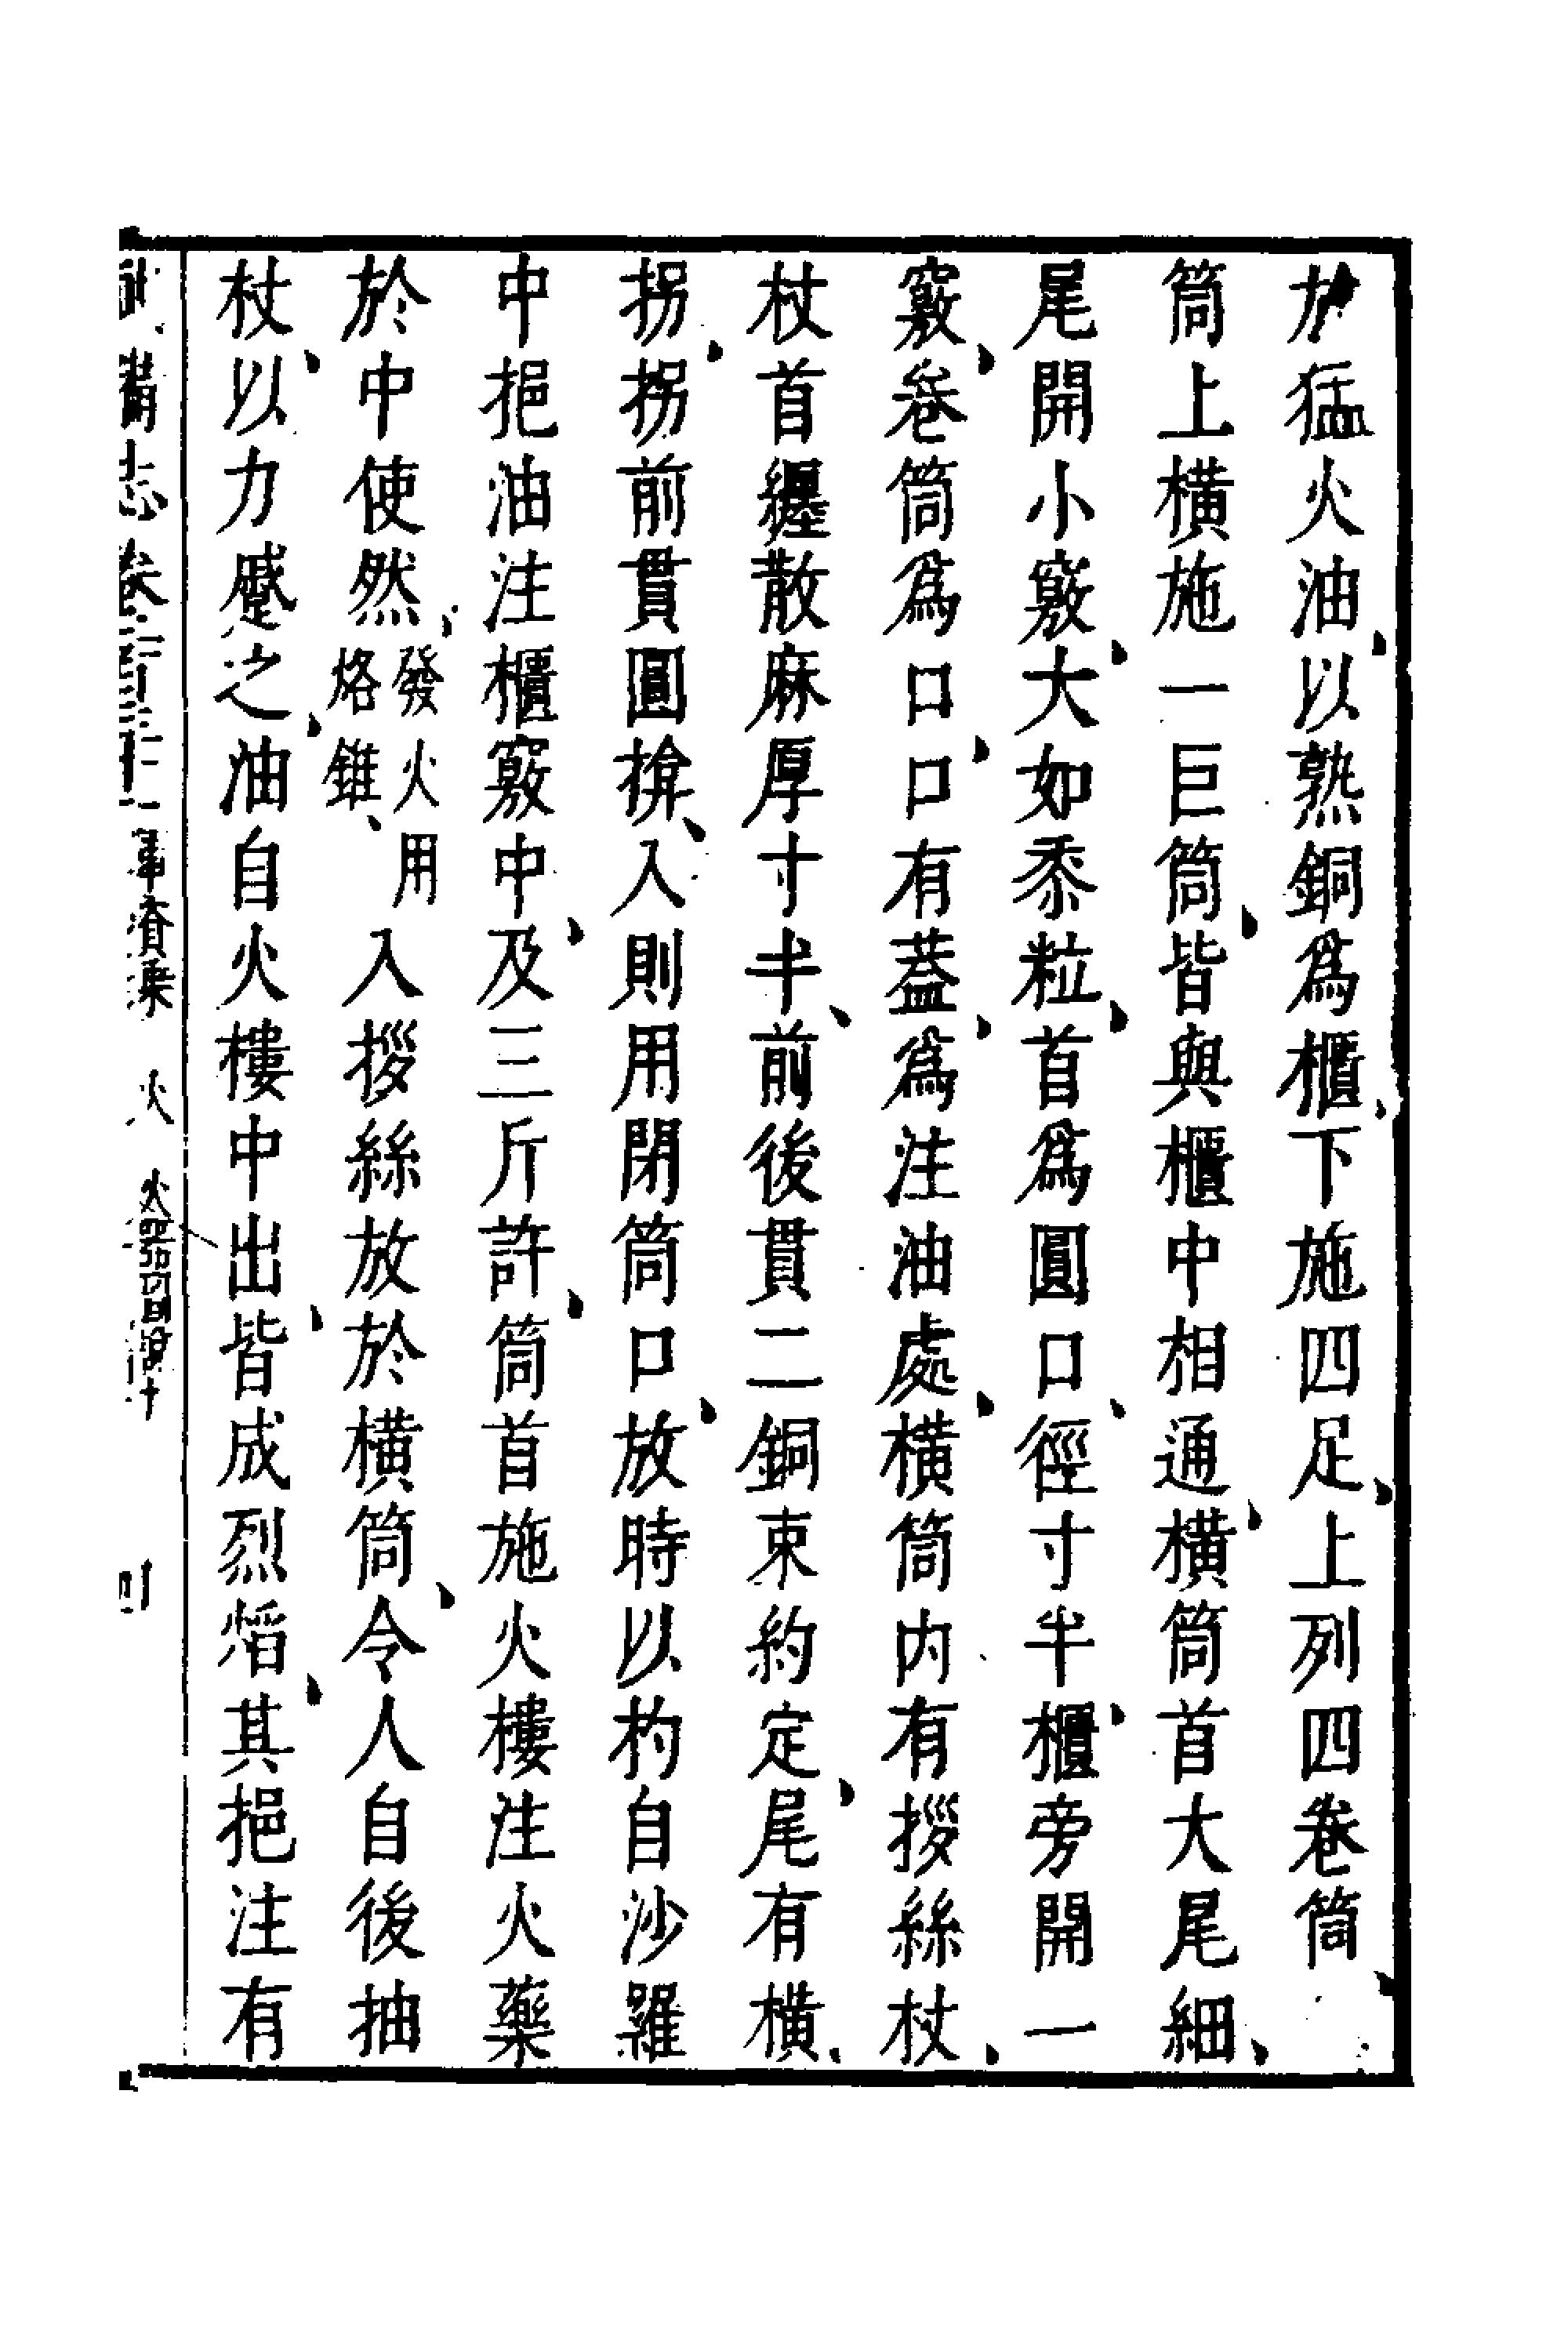 放猛火油、以熟銅爲櫃、下施四足、上列四卷筒、
筒上橫施一巨筒、皆與櫃中相通、橫筒首大尾細、
尾開小竅、大如黍粒、首爲圓口、徑寸半、櫃旁開一
竅、卷筒爲口、口有蓋、爲注油處、橫筒内有拶絲杖、
杖首纒散麻厚寸半、前後貫二銅束約定、尾有橫、
拐、拐前貫圓揜、入則用閉筒口、放時以杓自沙羅
中挹油注櫃竅中、及三斤許、筒首施火樓注火藥
於中使然、發火用烙錐、入拶絲放於橫筒、令人自後抽
杖、以力蹙之、油自火樓中出、皆成烈熖、其挹注有
武備志卷 軍資乘 火 火器圖說 四